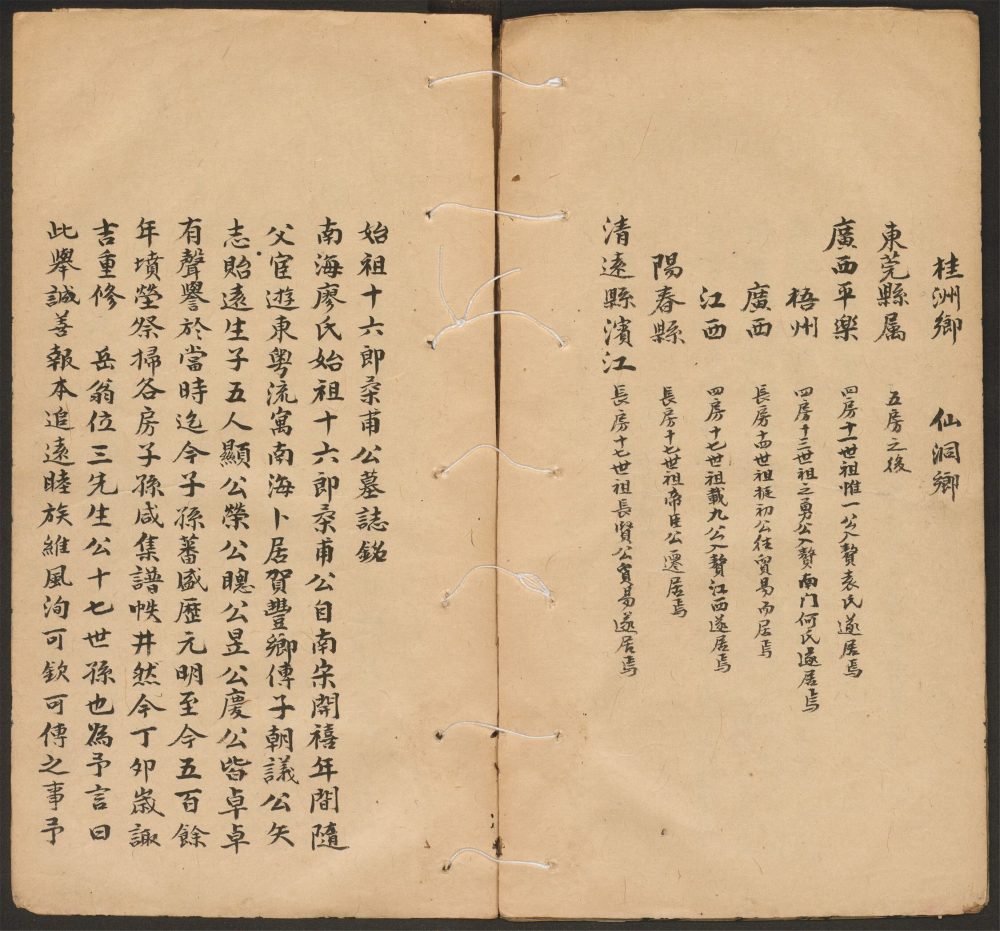 桂洲鄉 仙洞鄉
東莞縣属 五房之後
廣西平樂 四房十一世祖惟一公入贅袁氏遂居焉
梧州 四房十三世祖之勇公入贅南门何氏遂居焉
廣西 長房十四世祖挺初公往貿易而居焉
江西 四房十七世祖載九公入贅江西遂居焉
陽春縣 長房十七世祖帝臣公遷居焉
清遠縣濱江 長房十七世祖長賢公貿易遂居焉
始祖十六郎桑甫公墓誌銘
南海廖氏始祖十六郎桑甫公自南宋開禧年間隨
父宦遊東粵流寓南海卜居賀豐鄉傳子朝議公矢
志貽遠生子五人顯公榮公聰公昱公慶公皆卓卓
有聲譽於當時迄今子孫蕃盛歷元明至今五百餘
年墳塋祭掃各房子孫咸集譜帙井然今丁卯歲諏
吉重修 岳翁位三先生公十七世孫也為予言曰
此舉誠善報本追遠睦族維風洵可欽可傳之事予